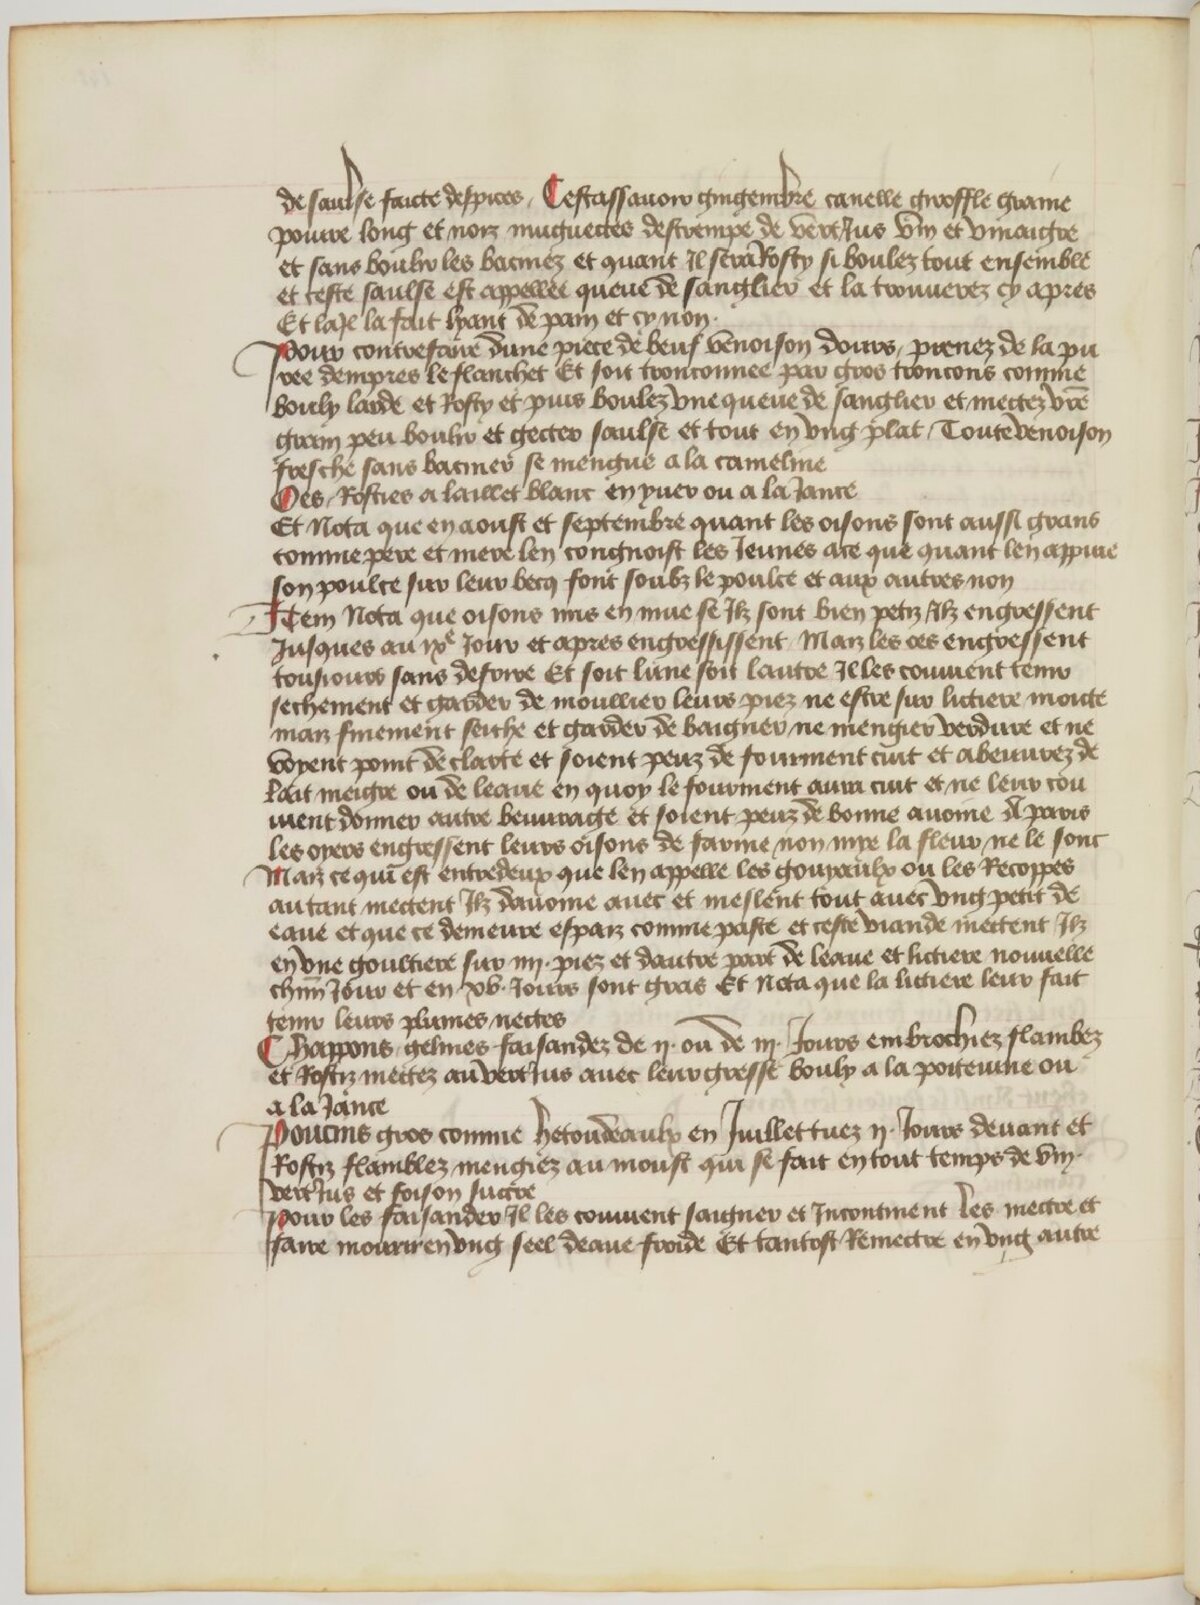 de saulse faicte despices. Cestassavoir gingembre canelle giroffle graine
poivre long et noix muguectes destrempe de vertjus vin et vinaigre
et sans boulir les bacinez et quant Il sera Rosty si boulez tout ensemble
et ceste saulse est appellee queue de sanglier et la trouverez cy apres
Et la Il la fait lyant de pain et cy non.
Pour contrefaire dune piece de beuf venoison dours / prenez de la pie
ree dempres le flanchet Et soit tronconnee par gros troncons comme
bouly larde et Rosty et puis boulez une queue de sanglier et mectez vre
grain peu boulir et gecter saulse et tout en ung plat / Toute venoison
fresche sans baciner se mengue a la cameline
Oes Rosties a laillet blanc en yver ou a la Jance
Et Nota que en aoust et septembre quant les oisons sont aussi grans
comme pere et mere len congnoist les Jeunes a ce que quant len appuie
son poulce sur leur becq font soubz le poulce et aux autres non
Item Nota que oisons mis en mue se Ilz sont bien petiz Ilz engressent
Jusques au ixe Jour et apres engressissent / Maiz les oes engressent
tousjours sans descroire Et soit lune soit lautre Il les couvient tenir
sechement et garder de moullier leurs piez ne estre sur lictiere moicte
maiz finement seiche et garder de baigner ne mengier verdure et ne
voyent point de clarte et soient peuz de fourment cuit et abeuvrez de
lait meigre ou de leaue en quoy le fourment aura cuit et ne leur cou
vient donner autre beuvrage et soient peuz de bonne avoine A paris
les oyers engressent leurs oisons de farine non mye la fleur ne le son
Maiz ce qui est entredeux que len appelle les gouyaulx ou les Recoppes
autant mectent Ilz davoine avec et meslent tout avec ung petit de
eaue et que ce demeure espaiz comme paste et ceste viande mectent Ilz
en une gouttiere sur iiii. piez et dautre part de leaue et lictiere nouvelle
chun Jour et en .xv. Jours sont gras Et Nota que la lictiere leur fait
tenir leurs plumes nectes
Chappons gelines faisandez de .ii. ou de .iii. Jours embrochiez flambez
et Rostiz mectez au vertjus avec leur gresse bouly a la poitevine ou
a la Jance
Poucins gros comme hetoudeaulx en Juillet tuez .ii. Jours devant et
Rostiz flamblez mengiez au moust qui se fait en tout temps de vin.
vertjus et foison succre
Pour les faisander Il les couvient saigner et Incontinent les mectre et
faire mourir en ung seel deaue froide Et tantost Remectre en ung autre